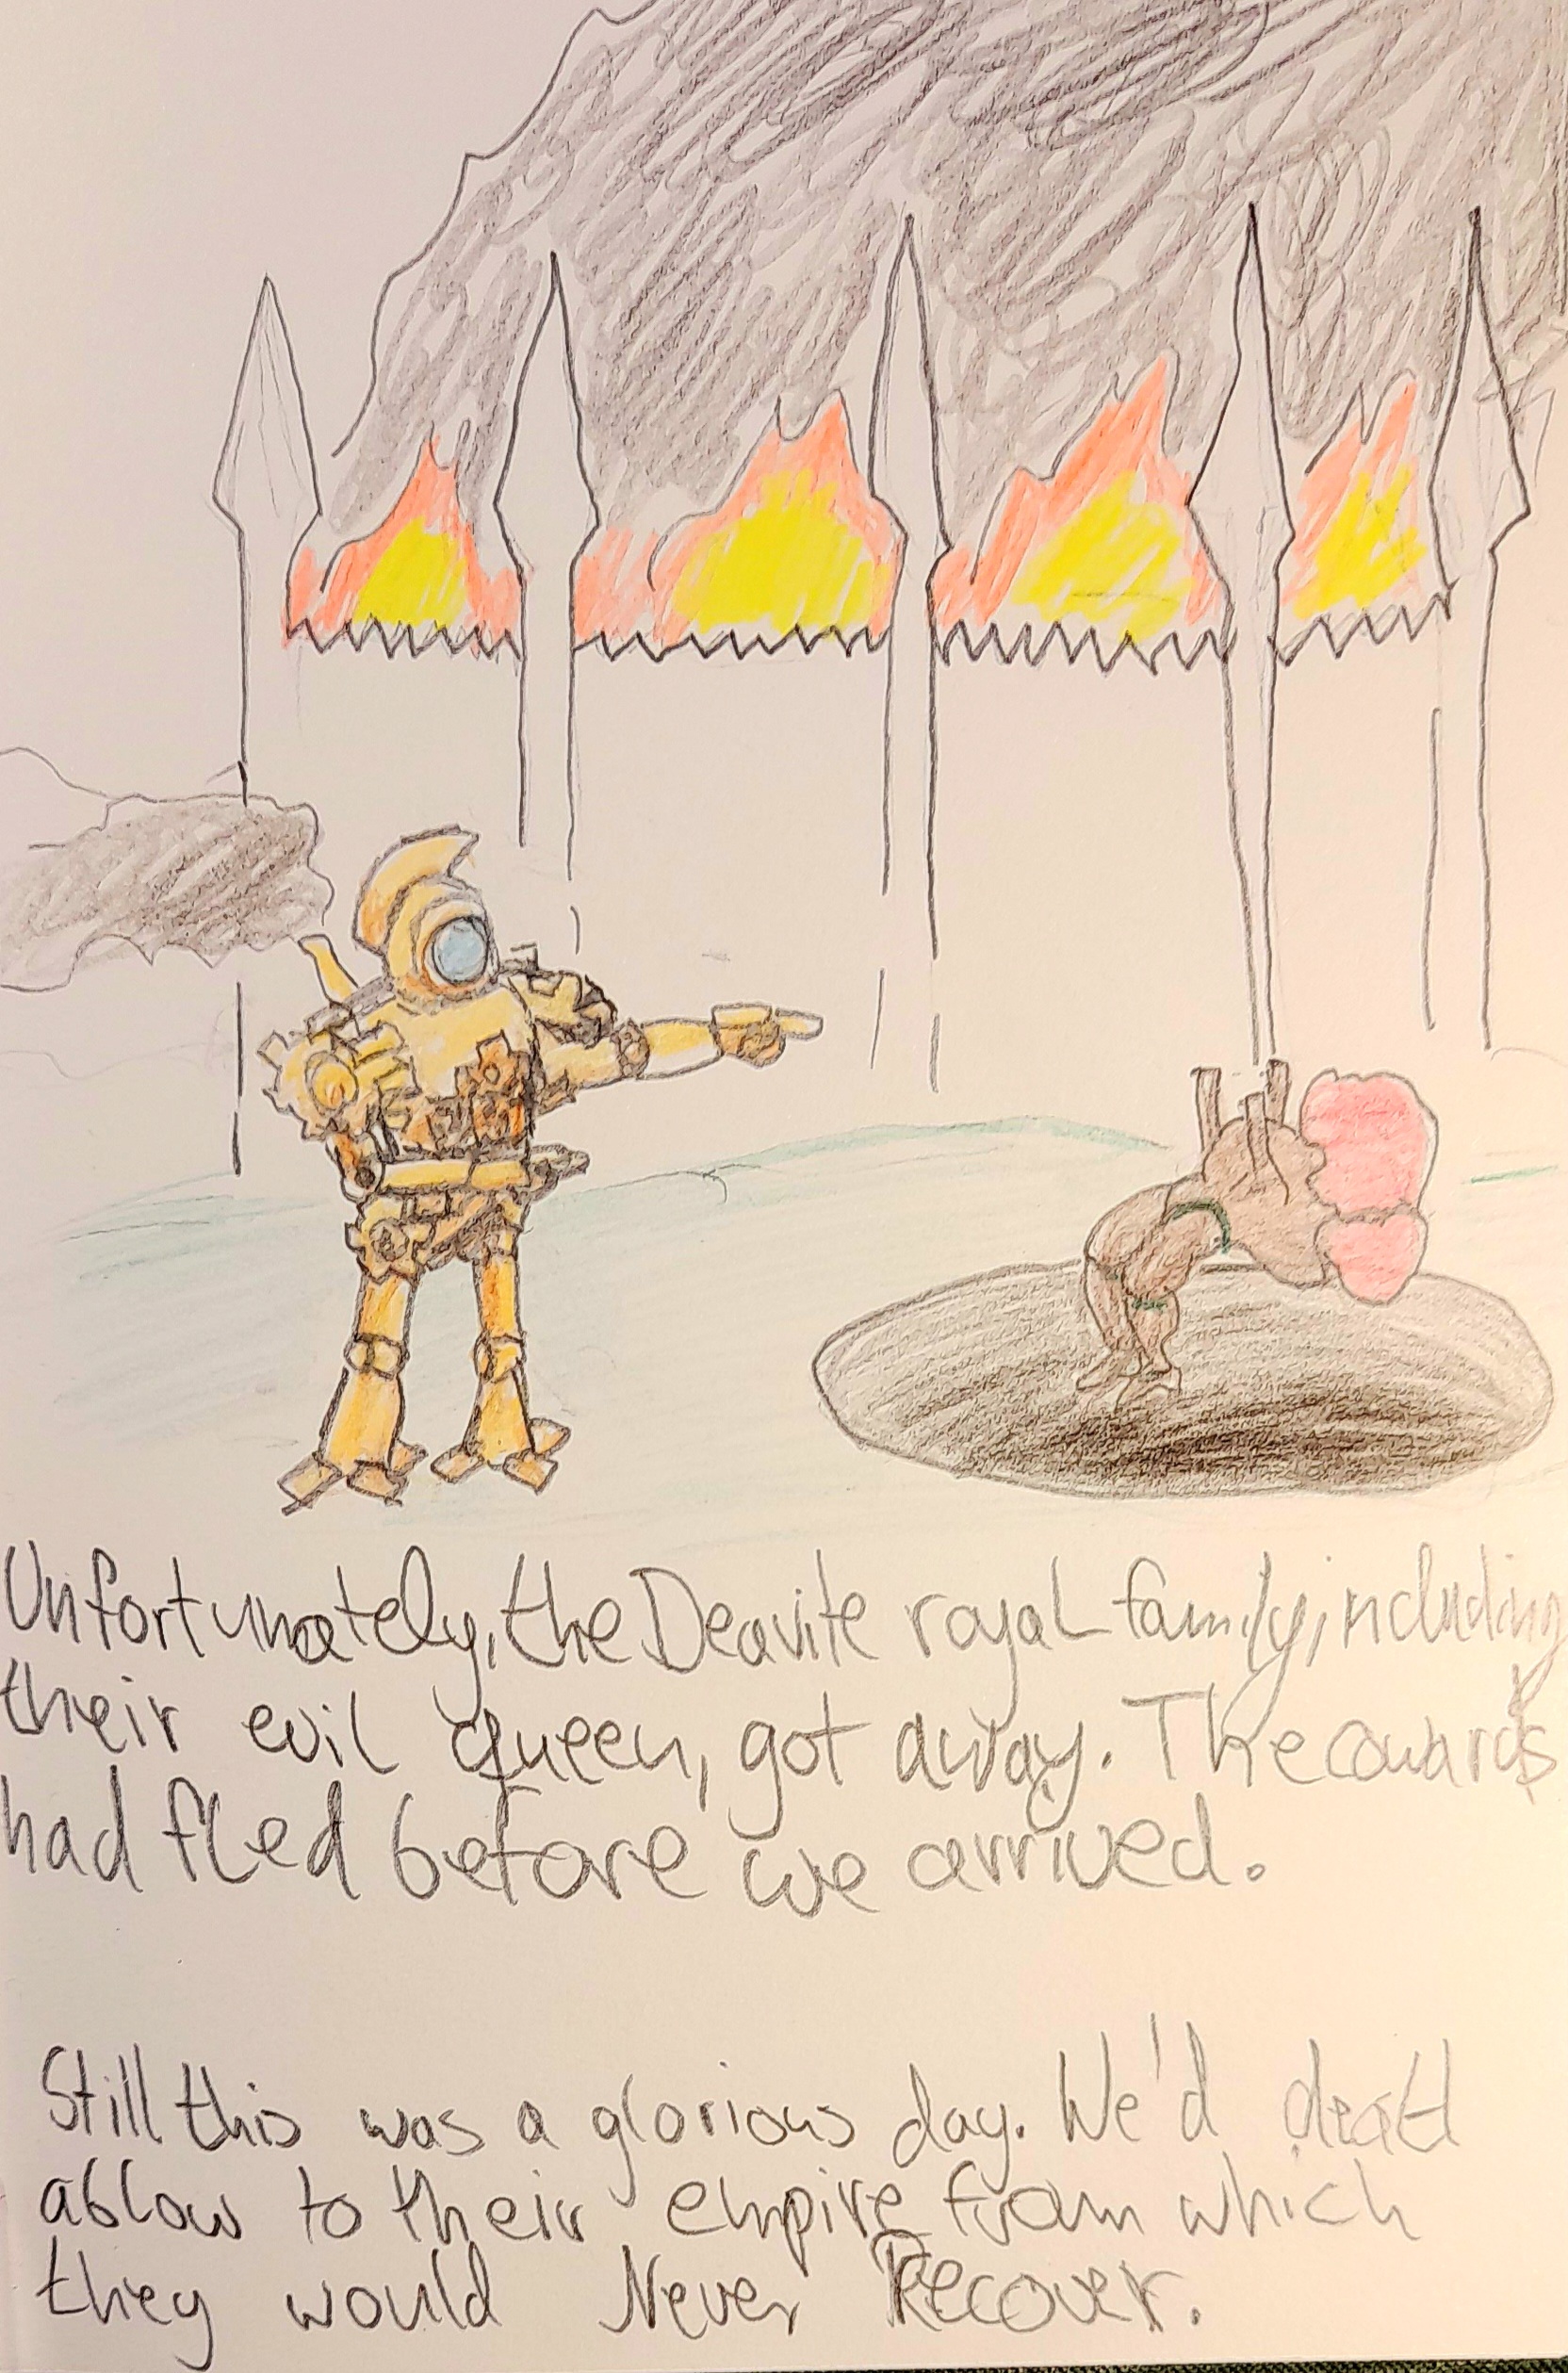 Unfortunately, the Deavite royal family, including
their evil queen, got away. The cowards
had fled before we arrived.
Still this was a glorious day. We'd dealt
a blow to their empire from which
they would Never Recover.